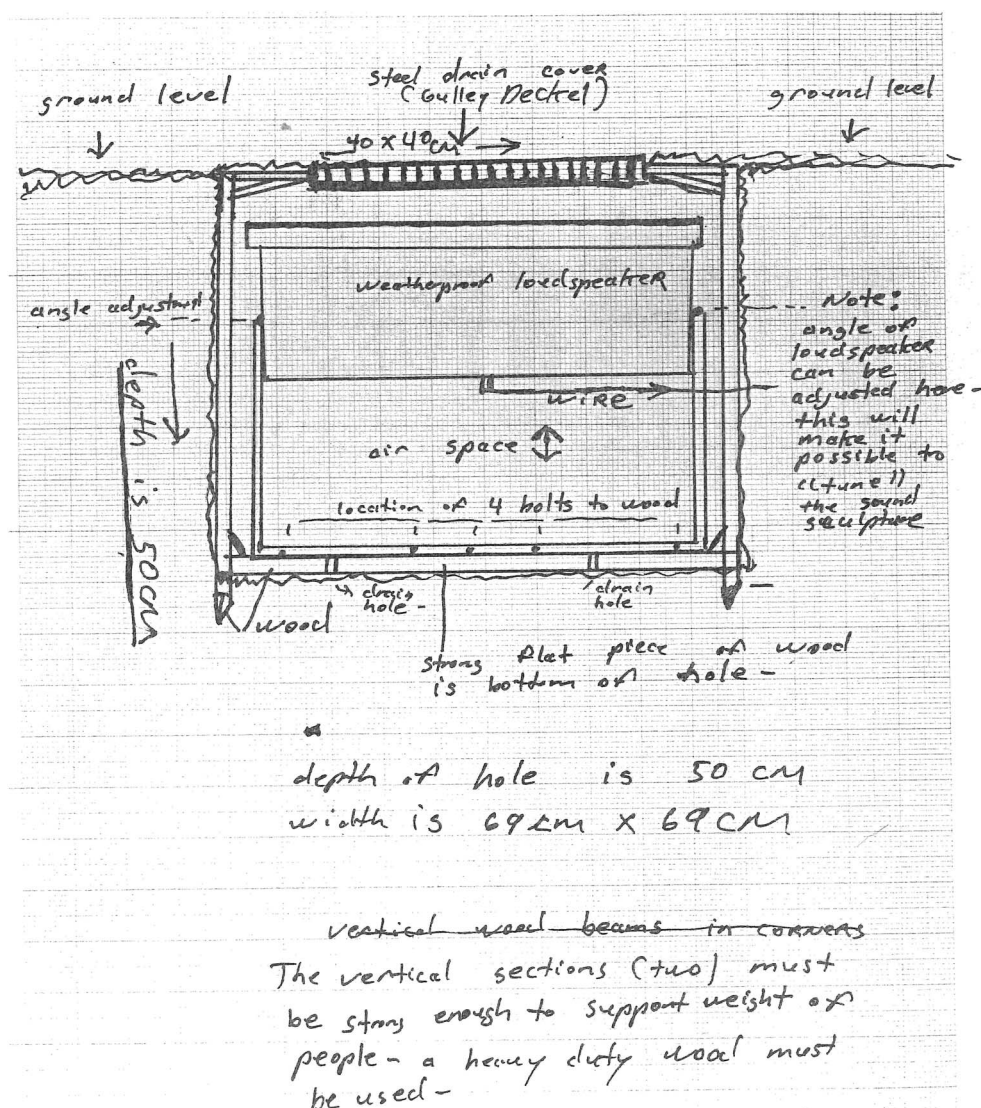 steel drain cover
(Gulley Deckel)
ground level
ground level
40 x 40 cm
weatherproof loudspeaker
angle adjustment
Note:
angle of
loudspeaker
can be
adjusted here-
this will
make it
possible to
"tune"
the sound
sculpture
WIRE
depth is 50cm
air space
location of 4 bolts to wood
drain
hole-
drain
hole
wood
strong flat piece of wood
is bottom of hole-
depth of hole is 50 cm
width is 69cm x 69cm
vertical wood beams in corners
The vertical sections (two) must
be strong enough to support weight of
people- a heavy duty wood must
be used-